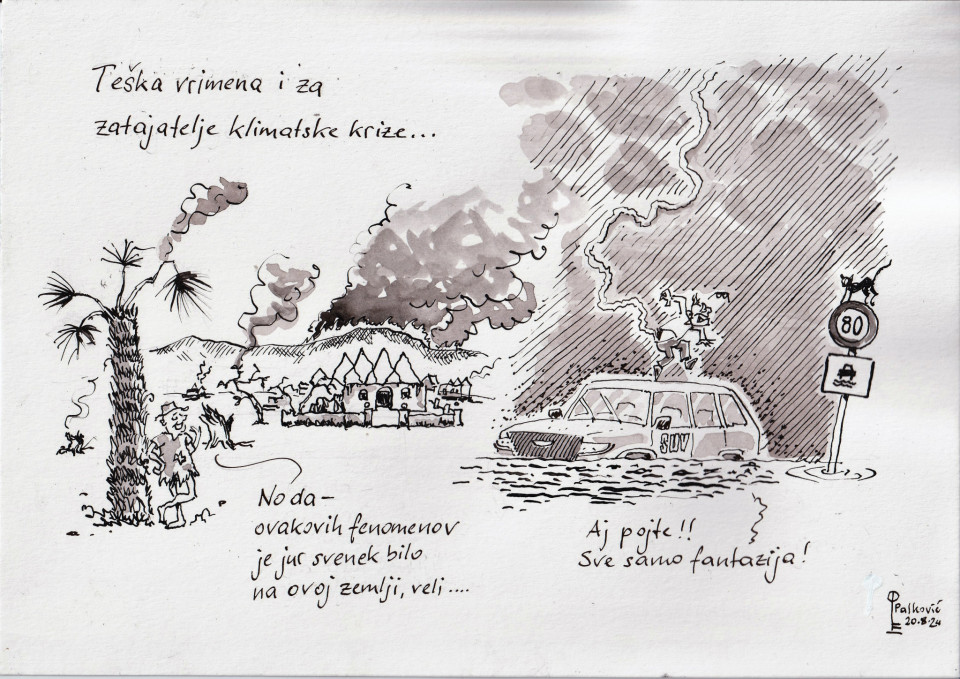 Teška vrimena i za
zatajatelje klimatske krize...
80
SUV
No da –
ovakovih fenomenov
je jur svenek bilo
na ovoj zemlji, veli ....
Aj pojte!!
Sve samo fantazija!
Palković
20.8.24